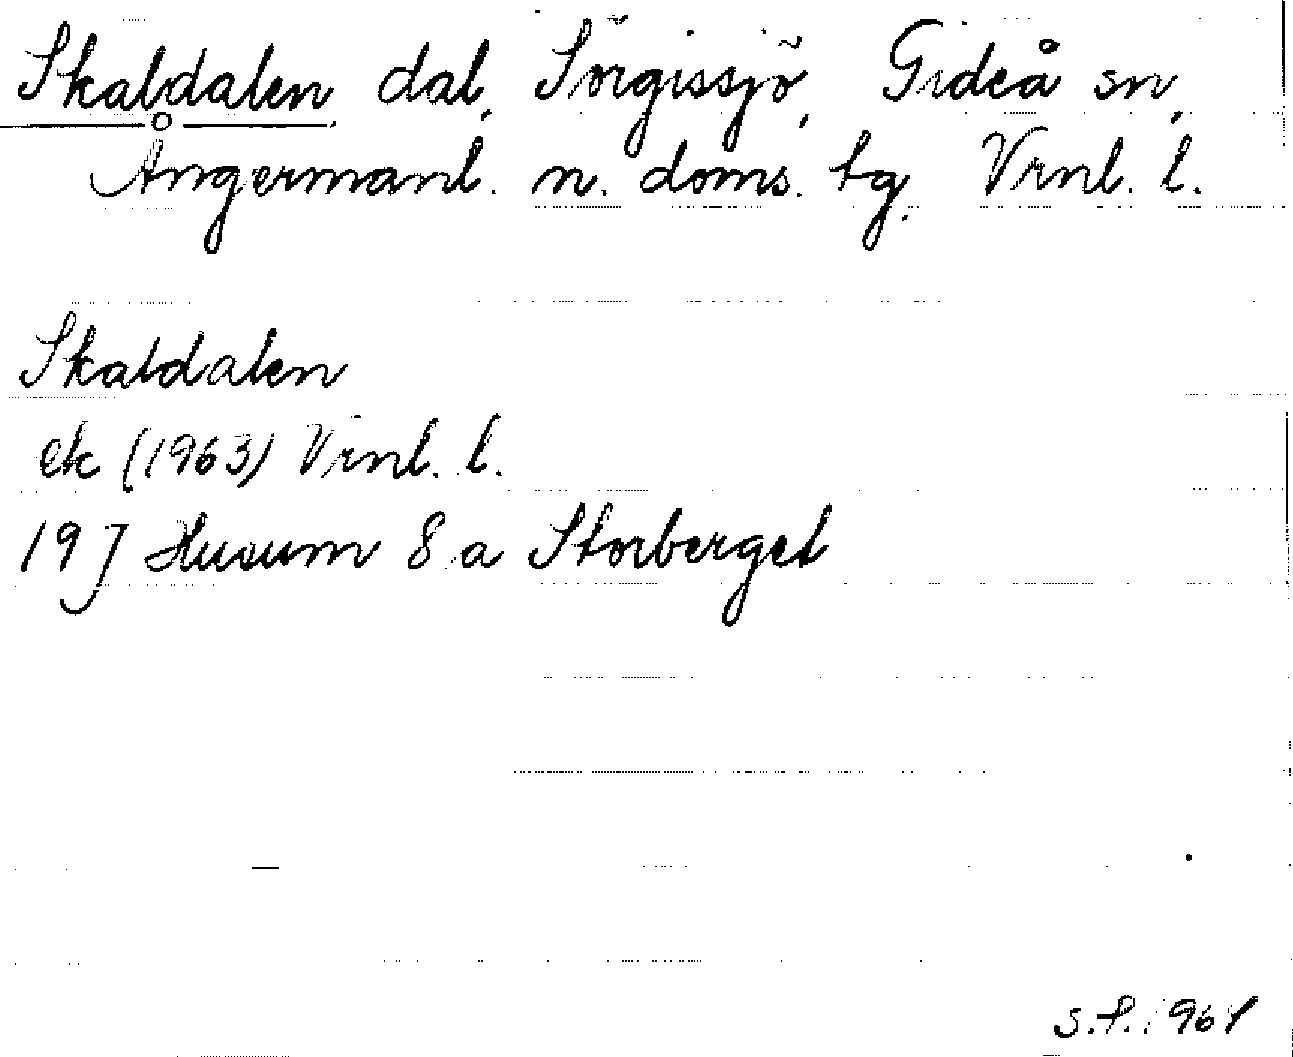 Skaldalen, dal, Sörgissjö, Gideå sn,
Ångermanl. n. doms. tg. Vrnl. l.
Skaldalen
ek (1963) Vrnl. l.
19 J Husum 8 a Storberget